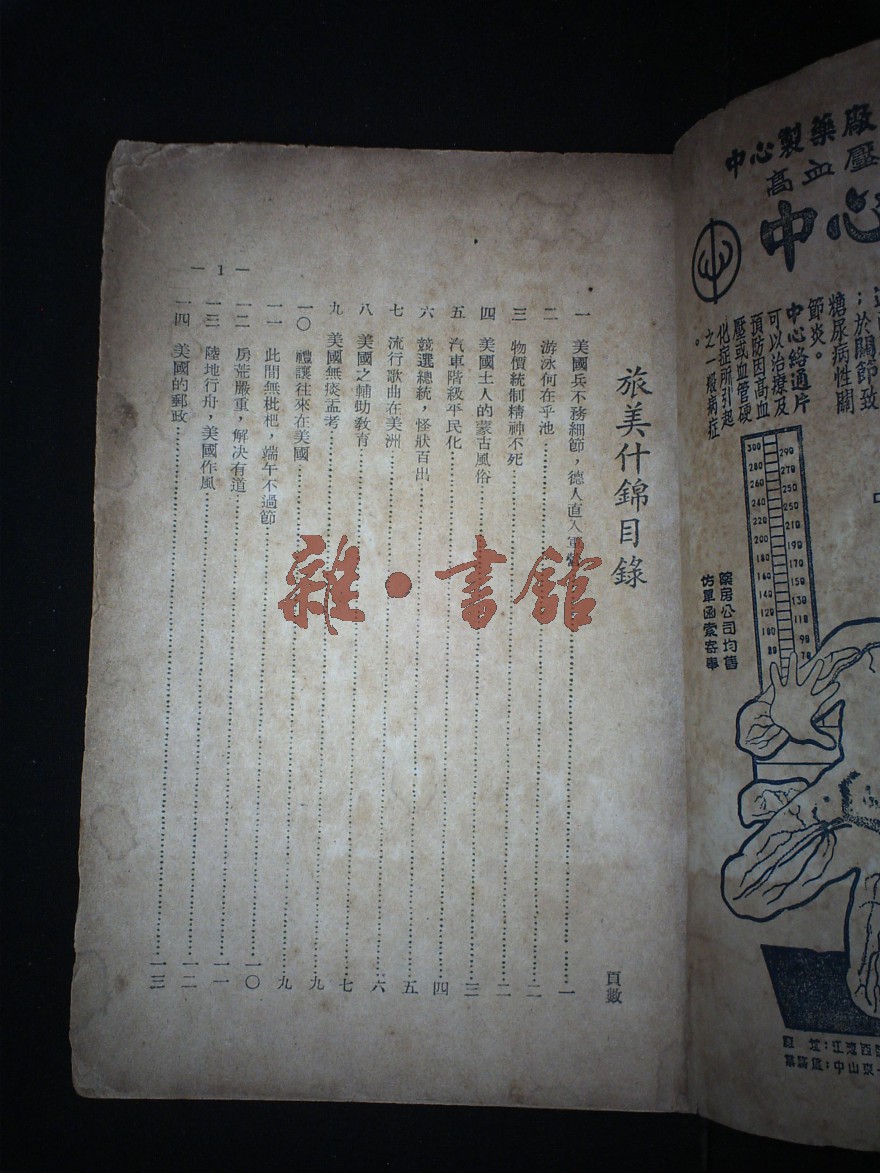 中心製藥廠
高血壓
中心
；於關節致
糖尿病性關
節炎。
中心絡通片
可以治療及
預防因高血
壓或血管硬
化症所引起
之一般病症
。
300 290
280 270
260 250
240 230
220 210
200 190
180 170
160 150
140 130
120 110
100 90
80 70
藥房公司均售
仿單函索寄奉
旅美什錦目錄
頁數
一 美國兵不務細節，德人直入軍……一
二 游泳何在乎池……二
三 物價統制精神不死……二
四 美國土人的蒙古風俗……三
五 汽車階級平民化……四
六 競選總統，怪狀百出……五
七 流行歌曲在美洲……六
八 美國之輔助敎育……七
九 美國無痰盂考……九
一〇 禮讓往來在美國……九
一一 此間無枇杷，端午不過節……一〇
一二 房荒嚴重，解决有道……一一
一三 陸地行舟，美國作風……一二
一四 美國的郵政……一三
— 1 —
雜·書館